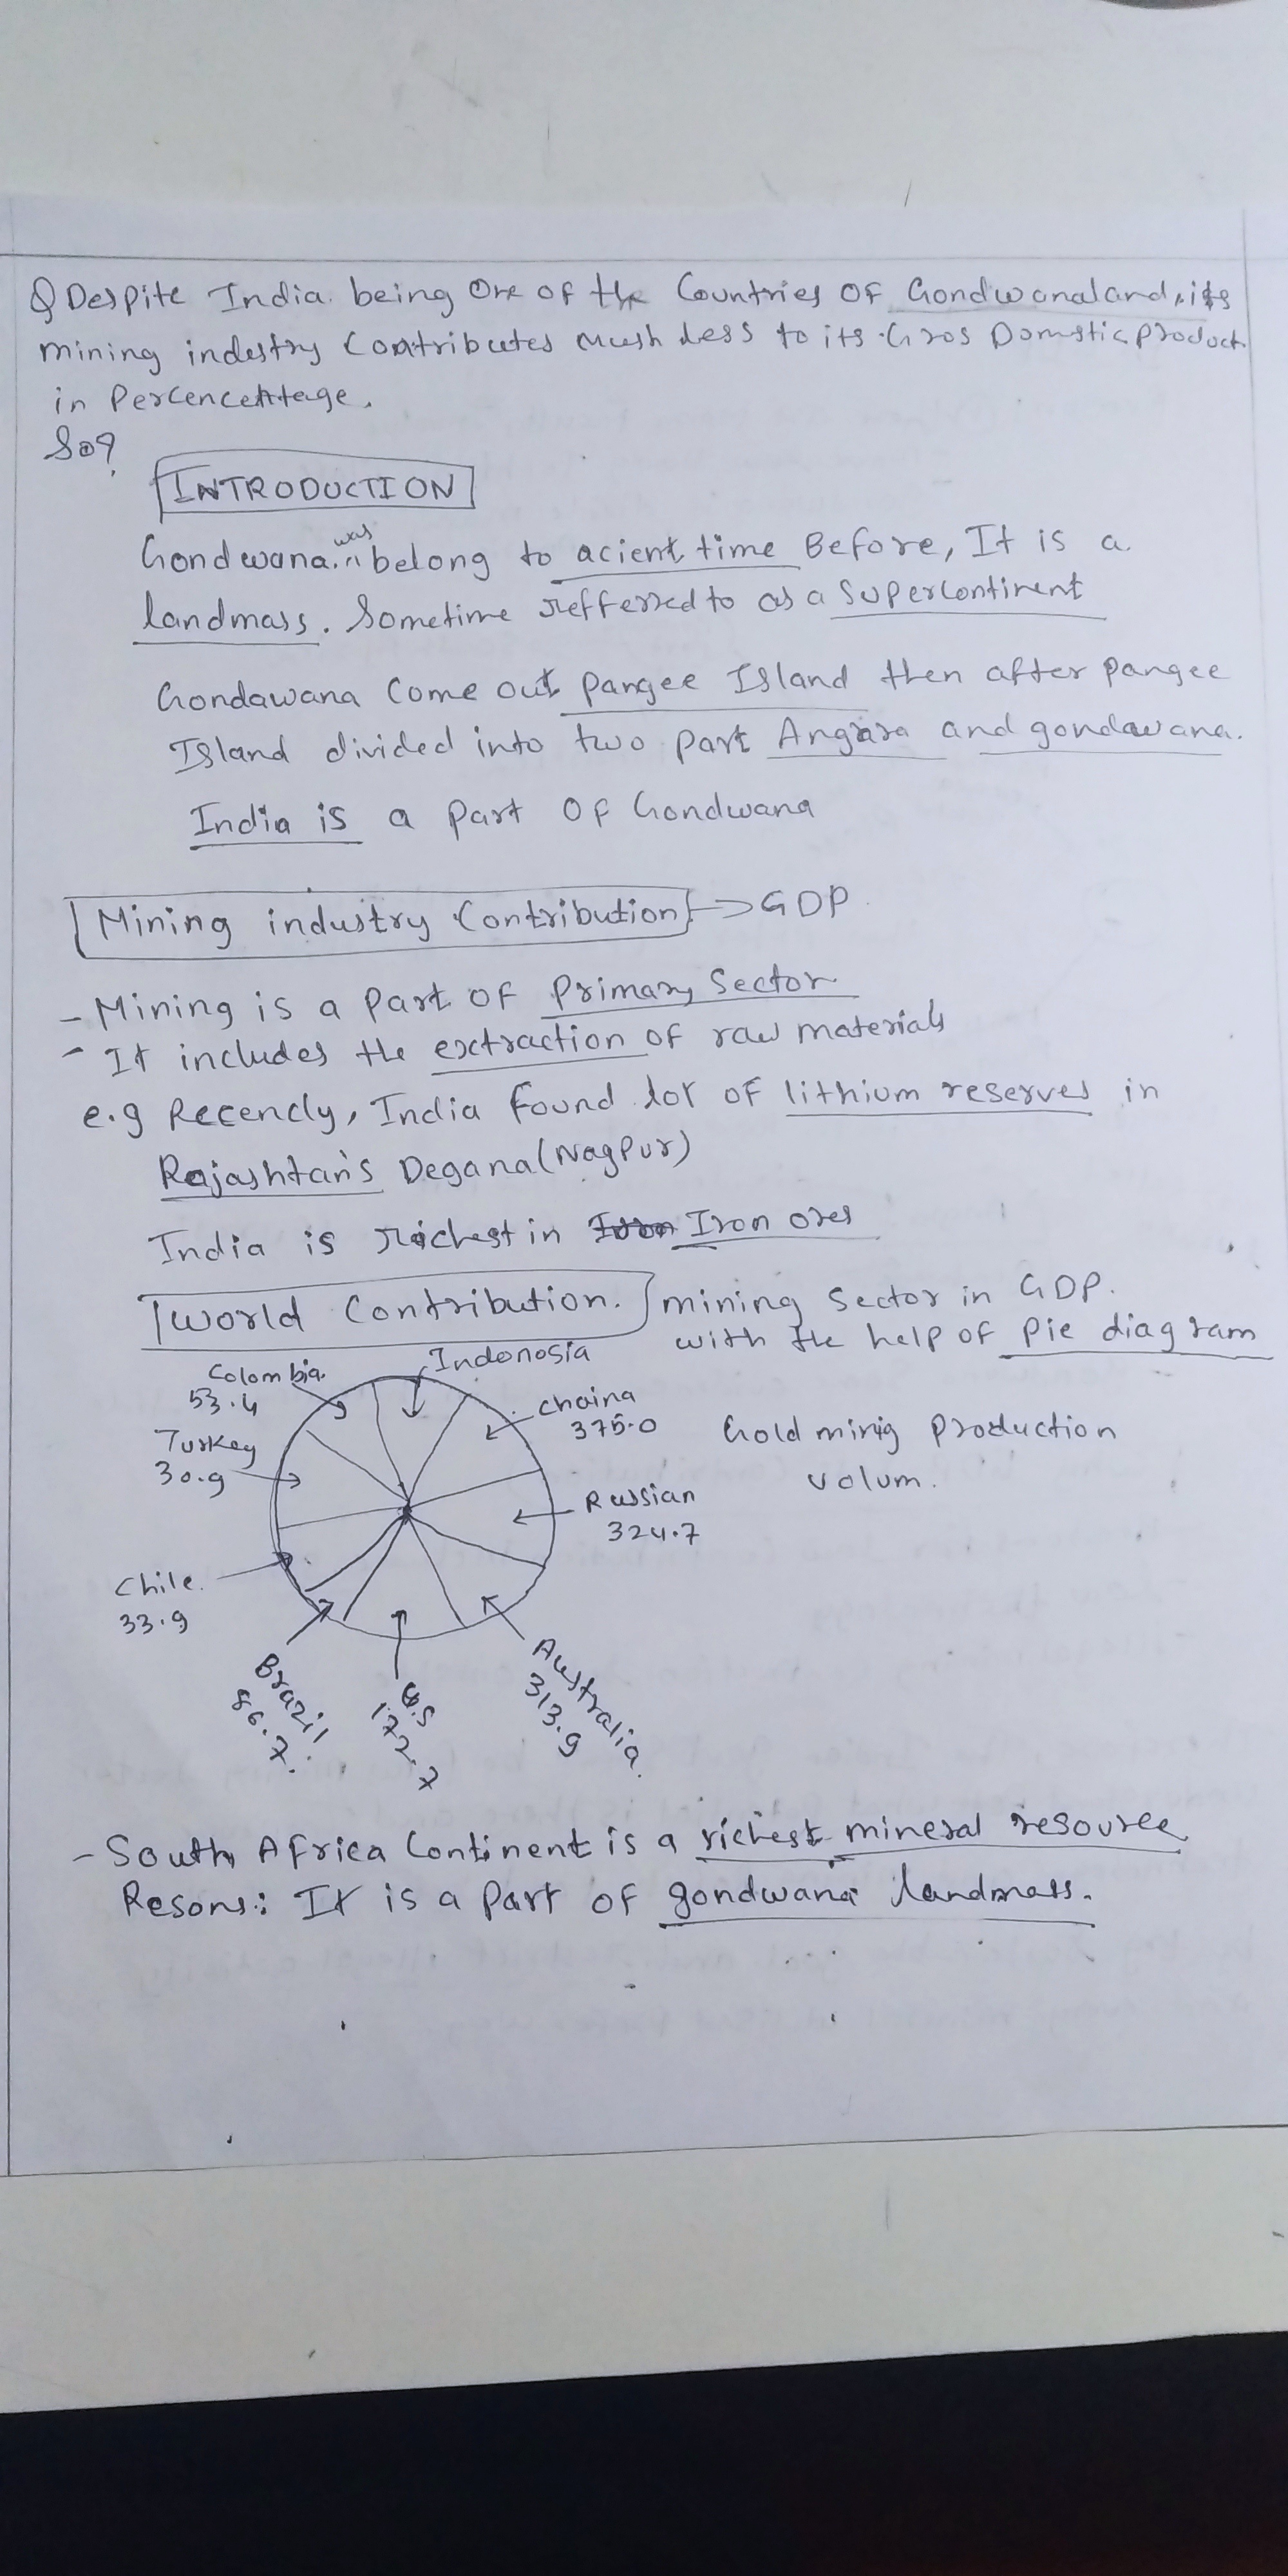 Q Despite India being One of the Countries OF Gondwanaland, its
mining indestry Contributes mush less to its Gros Domstic product
in Percencettage.
So?
INTRODUCTION
Gondwana was belong to acient time Before, It is a
landmass. Sometime reffered to as a Supercontinent
Gondawana Come out pangee Island then after pangee
Island divided into two part Angara and gondawana.
India is a part OF Gondwana
Mining industry Contribution → GDP
- Mining is a part OF Primary Sector
- It includes the extraction of raw materials
e.g Recencly, India found lot of lithium reserves in
Rajashtan's Degana (Nagpur)
India is richest in Iron ores
World Contribution. mining Sector in GDP.
with the help of pie diagram
Colombia
53.4
Indonosia
Chaina
375.0
Gold minig production
volum.
Turkey
30.9
Russian
324.7
Chile.
33.9
Brazil
86.7.
U.S
172.7
Australia.
313.9
- South Africa Continent is a richest mineral resource
Resons: It is a part of gondwana landmass.